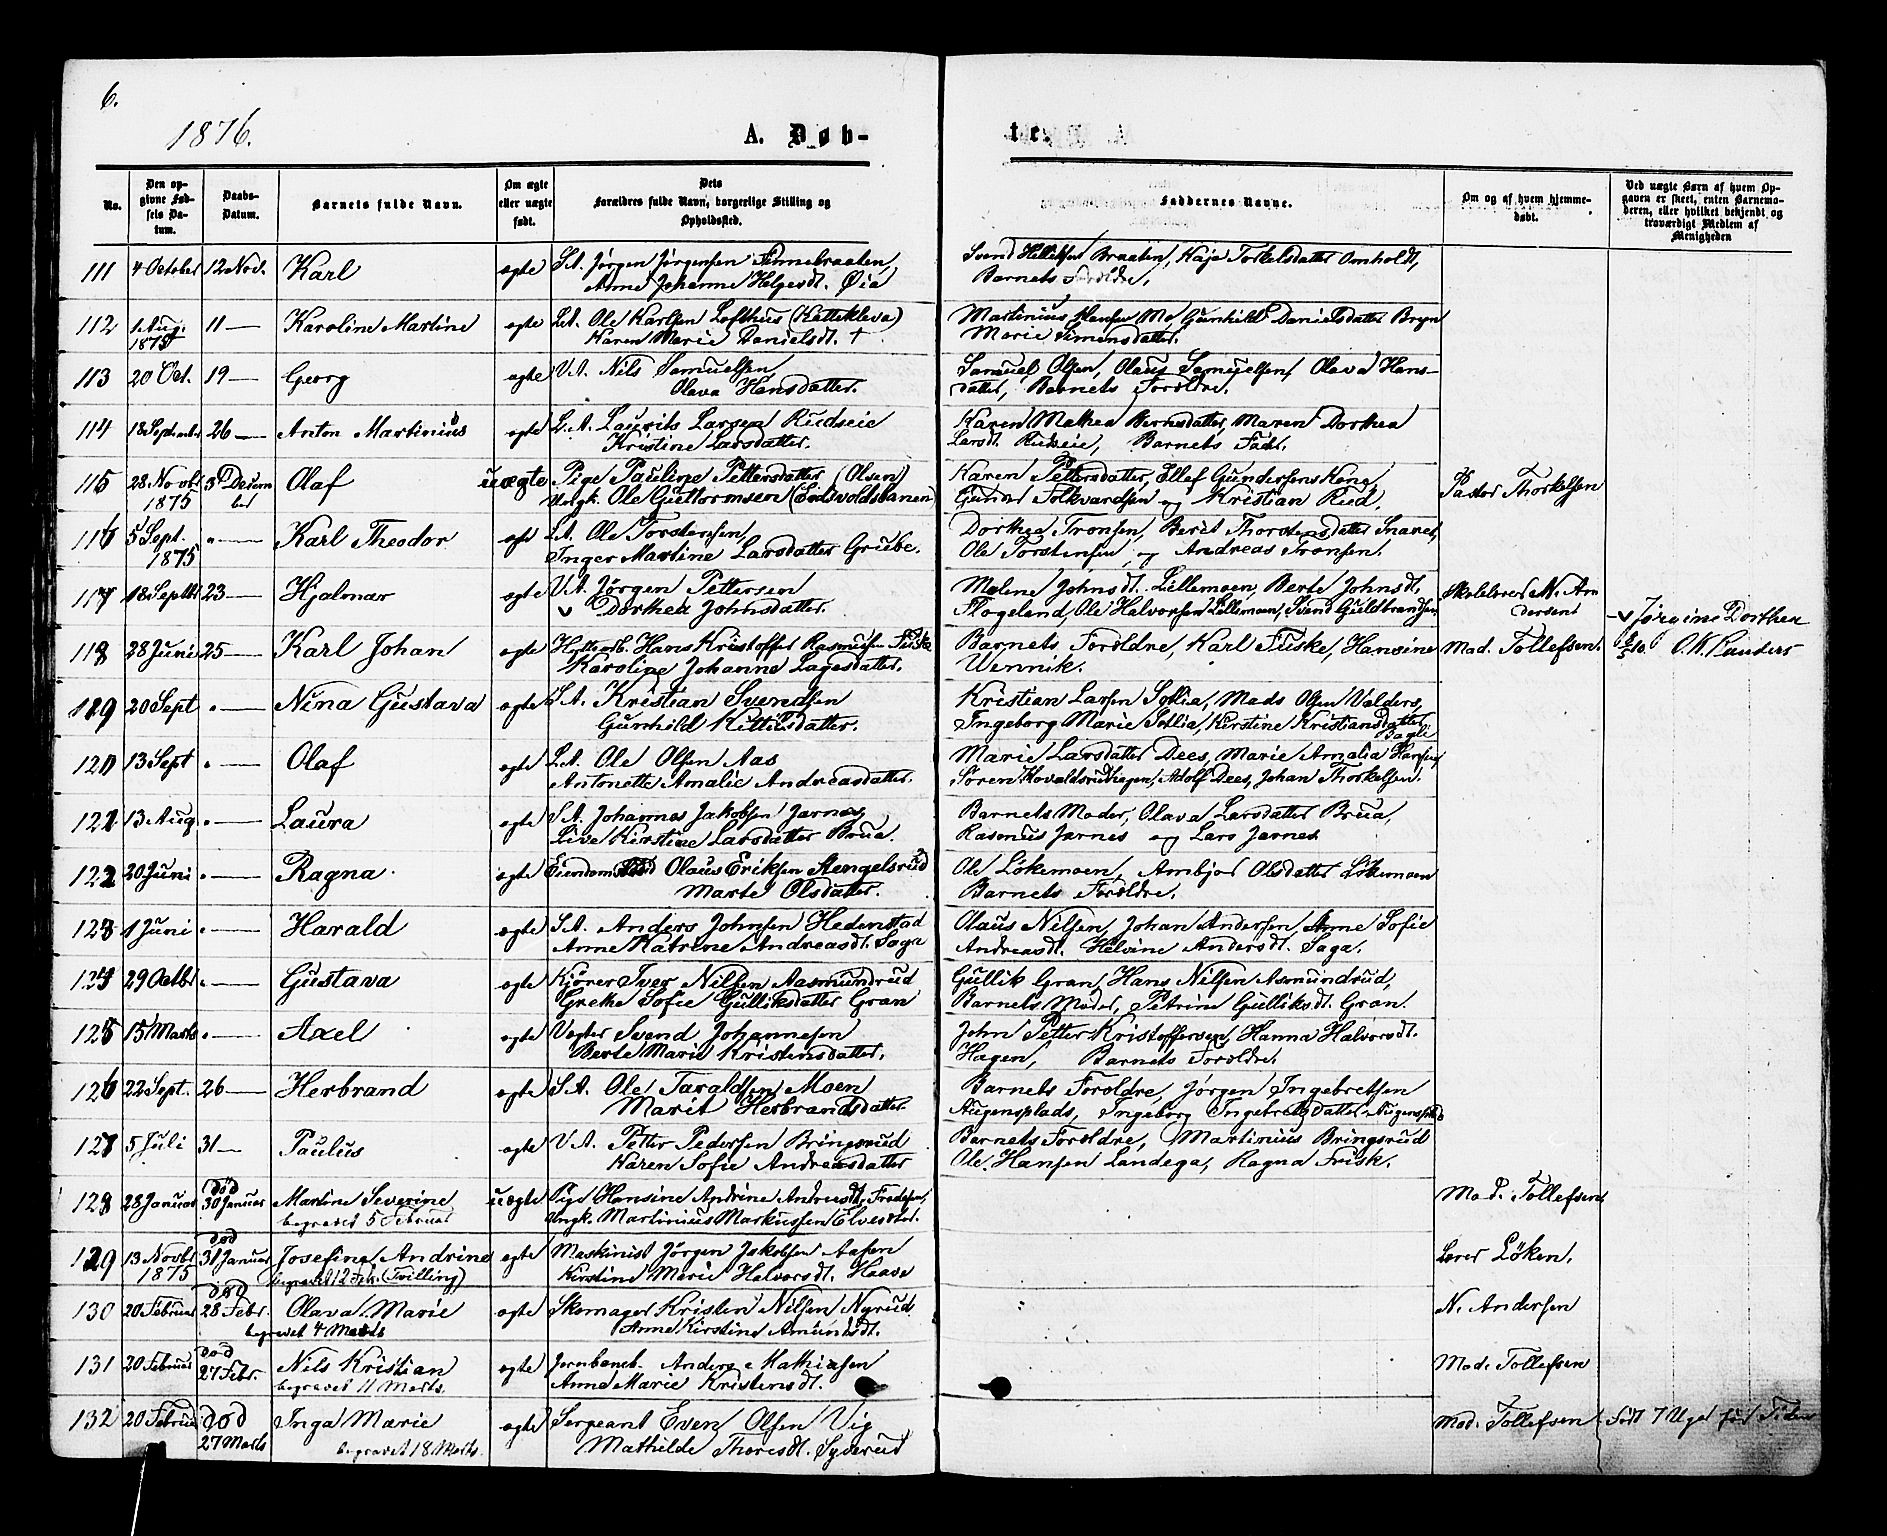 6.
1876.
A. Døb-
te.
No.
Den op-
givne Fød-
sels Da-
tum.
Daabs-
Datum.
Barnets fulde Navn.
Om ægte
eller uægte
født.
Dets
Forældres fulde Navn, borgerlige Stilling og
Opholdssted.
Faddernes Navne.
Om og af hvem hjemme-
døbt.
Ved uægte Børn af hvem Op-
gaven er skeet, enten Barnemo-
deren, eller hvilket bekjendt og
troværdigt Medlem af
Menigheden
111 4 October 12 Nov. Karl ægte S.A. Jørgen Jørgensen Finnebraaten, Svend Hellesen Braaten, Kaja Torkelsdatter Omholdt,
Anne Johanne Helgesdt. Øia Barnets Forældre.
112 1 Aug. 11 — Karoline Martine ægte L.A. Ole Karlsen Lofthus (Kattekleva) Martinius Hansen Mo, Gunhild Danielsdatter Bryn
1875 Karen Marie Danielsdt. † Marie Simensdatter.
113 20 Oct. 19 — Georg ægte V.A. Nils Samuelsen, Samuel Olsen, Olaus Samuelsen, Olava Hans-
Olava Hansdatter. datter, Barnets Forældre.
114 18 September 26 — Anton Martinius ægte L.A. Laurits Larsen Rudseie Karen Mathea Berntsdatter, Maren Dorthea
Kristine Larsdatter. Larsdt. Rudseie, Barnets Fader.
115 28 Novbr 3 Decem Olaf uægte Pige Pauline Pettersdatter (Olsen) Karen Pettersdatter, Ellef Gundersens Kone, Pastor Thorkelsen
1875 ber Ungk. Ole Guttormsen (Eidsvoldsbanen) Gunder Folkvardsen og Kristian Rud.
116 5 Sept. " — Karl Theodor ægte L.A. Ole Torstensen, Dorthea Tronsen, Berit Thorstensdatter Snaret,
1875 Inger Martine Larsdatter Grube. Ole Torstensen og Andreas Tronsen.
117 18 Septbr 23 — Hjalmar ægte V.A. Jørgen Pettersen Malene Johnsdt. Lillemoen, Berte Johnsdt. Skolelærer N. An
v Dorthea Johnsdatter. Flogeland, Ole Halvorsen Lillemoen, Svend Guldbrandsen dersen v Jørgine Dorthea
118 28 Juni 25 — Karl Johan ægte Hans Kristoffer Rasmusen Fuske Barnets Forældre, Karl Fuske, Hansine Mad. Tollefsen.
Karoline Johanne Lagesdatter. Wennik.
119 20 Sept " — Nina Gustava ægte S.A. Kristian Svendsen Kristian Larsen Sølia, Mads Olsen Valders,
Gunhild Kittilsdatter. Ingeborg Marie Sølia, Kirstine Kristiansdatter
Bagli
120 13 Sept " — Olaf ægte L.A. Ole Olsen Aas Marie Larsdatter Dees, Marie Amalia Hansen,
Antonette Amalie Andreasdatter. Søren Hovaldsrudhagen, Adolf Dees, Johan Thorkelsen.
121 13 Aug. " — Laura ægte S.A. Johannes Jakobsen Jarnes, Barnets Moder, Olava Larsdatter Brua,
Live Kirstine Larsdatter Brua. Rasmus Jarnes og Lars Jarnes
122 20 Juni " — Ragna. ægte Olaus Eriksen Stengelsrud Ole Løkemoen, Ambjør Olsdatter Løkemoen
Marte Olsdatter. Barnets Forældre.
123 1 Juni " — Harald ægte S.A. Anders Johnsen Hedenstad Olaus Nilsen, Johan Andersen, Anne Sofie
Anne Katrine Andreasdt. Sagn Andreasdt. Helvine Andersdt. Saga.
124 29 Octbr " — Gustava ægte Kjører Iver Nilsen Aasmundrud Gullik Gran, Hans Nilsen Asmundrud,
Grete Sofie Gulliksdatter Gran Barnets Moder, Petrine Gulliksdt. Gran.
125 15 Marts " — Axel ægte Vægter Svend Johannesen John Petter Kristoffersen, Hanna Halvorsdt.
Berte Marie Kristensdatter. Hagen, Barnets Forældre.
126 22 Sept. 26 — Herbrand ægte S.A. Ole Taraldsen Moen Barnets Forældre, Jørgen Ingebretsen
Marit Herbrandsdatter Augensplads, Ingeborg Ingebretsdatter
127 5 Juli 31 — Paulus ægte V.A. Petter Pedersen Bringsrud Barnets Forældre, Martinius Bringsrud
Karen Sofie Andreasdatter Ole Hansen Landega, Ragna Frisk.
død
128 28 Januar 30 Januar Martine Severine uægte Pige Hansine Andrine Andreasdt. Mad. Tollefsen
begravet 5 Februar Ungk. Martinius Markussen
død
129 13 Novbr 31 Januar Josefine Andrine ægte Maskinist Jørgen Jakobsen Aasen Lærer Løken.
1875 begravet 12 Feb. (Tvilling) Kirstine Marie Halvorsdt. Haave
død
130 20 Februar 28 Febr. Olava Marie ægte Skomager Kristen Nilsen Nyrud N. Andersen
begravet 4 Marts Anne Kirstine Amundsdt.
død
131 20 Februar 27 Febr. Nils Kristian ægte Jernbaneb. Anders Mathiasen Mad. Tollefsen
begravet 11 Marts. Anne Marie Kristensdt.
132 20 Februar død Inga Marie ægte Sergeant Even Olsen Vig Mad. Tollefsen Født 7 Uger før Tiden
27 Marts begravet 18 Marts. Mathilde Thoresdt. Syverud